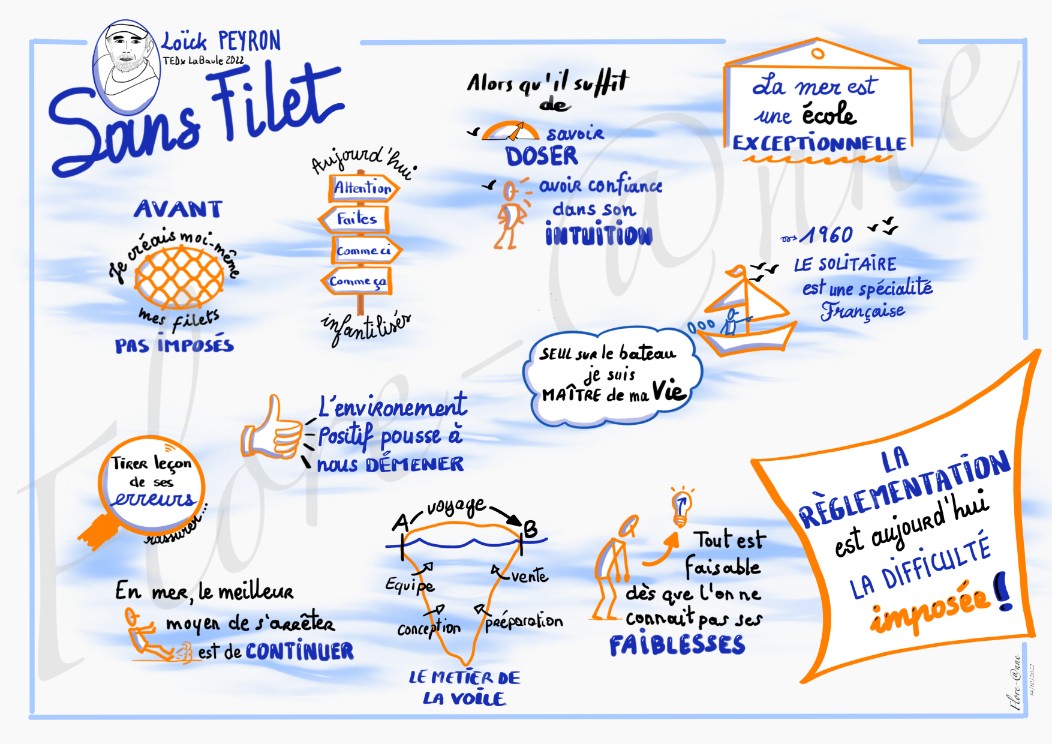 Loïck PEYRON
TEDx LaBaule 2022
Sans Filet
AVANT
Je créais moi-même
mes filets
PAS IMPOSÉS
Aujourd'hui
Attention
Faites
Comme ci
Comme ça
infantilisés
Alors qu'il suffit
de
savoir
DOSER
avoir confiance
dans son
INTUITION
La mer est
une école
EXCEPTIONNELLE
1960
LE SOLITAIRE
est une spécialité
Française
SEUL SUR le bateau
je suis
MAÎTRE de ma Vie
L'environement
Positif pousse à
nous DÉMENER
Tirer leçon
de ses
erreurs
rassurer...
En mer, le meilleur
moyen de s'arrêter
est de CONTINUER
A voyage B
Equipe
vente
conception
préparation
LE METIER DE
LA VOILE
Tout est
faisable
dès que l'on ne
connait pas ses
FAIBLESSES
LA
RÈGLEMENTATION
est aujourd'hui
LA DIFFICULTÉ
imposée!
Flore-@nne
Flore-@nne